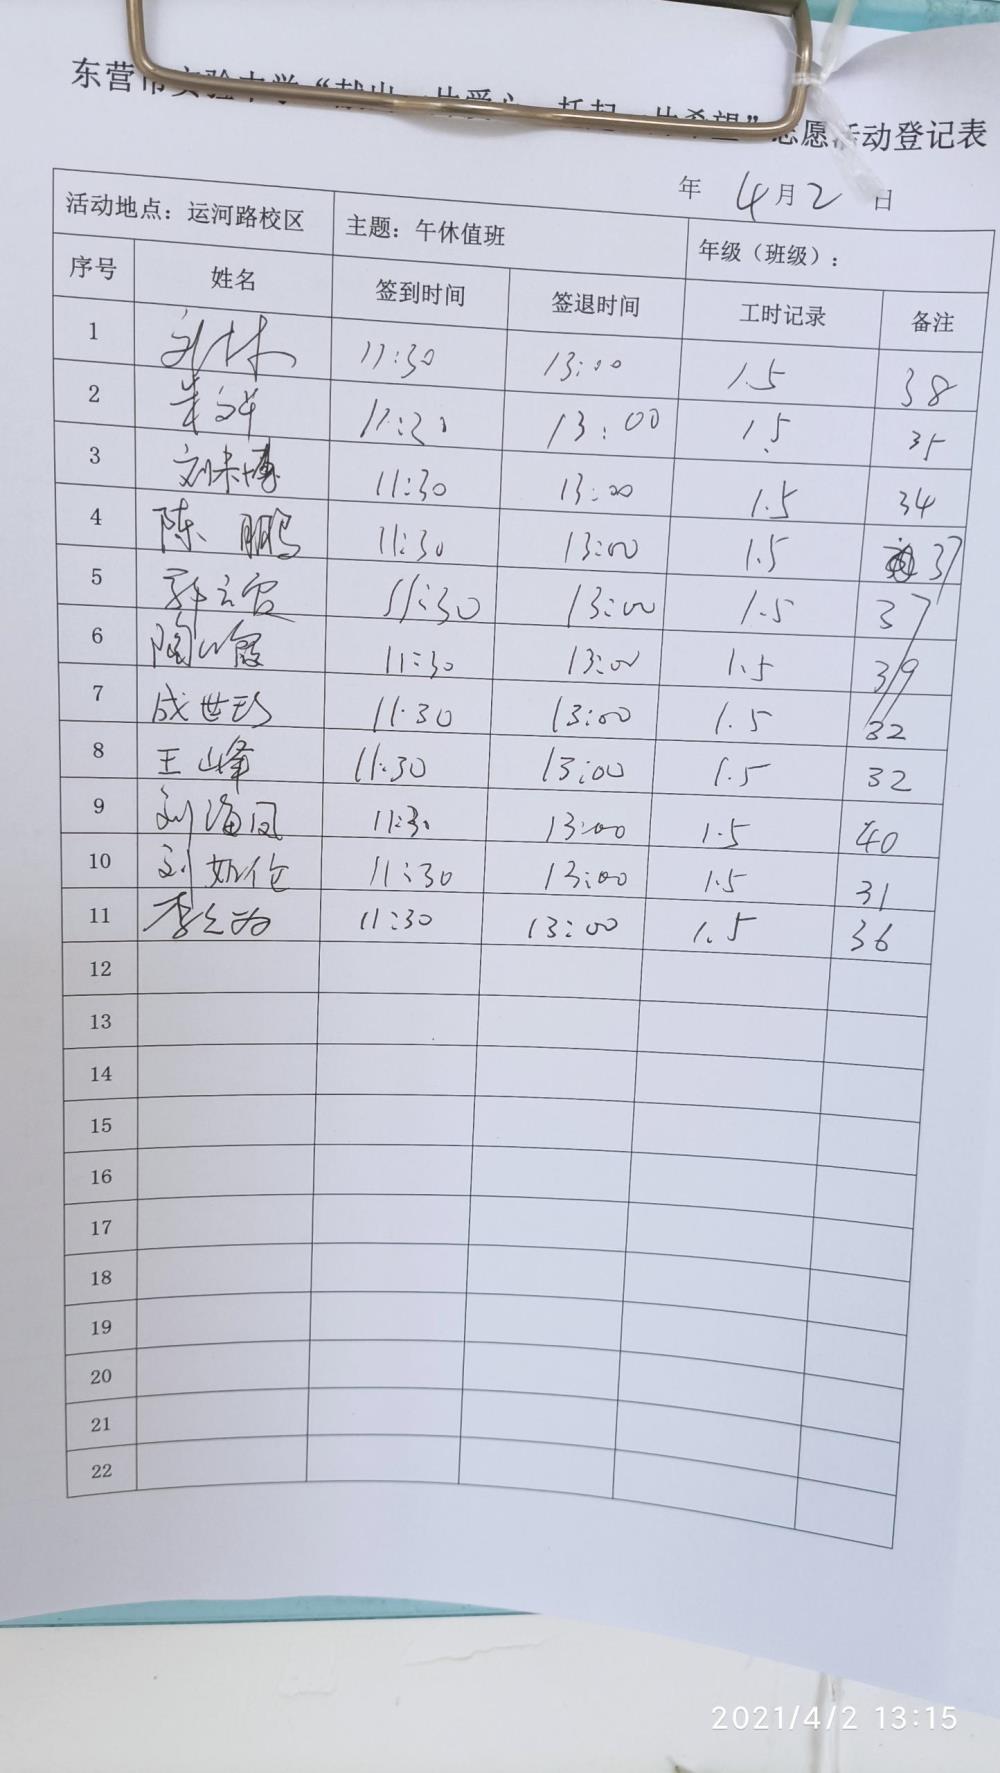 东营市实验中学“献出一片爱心 托起一片希望”志愿活动登记表
年 4月2日
活动地点：运河路校区 主题：午休值班 年级（班级）：
序号 姓名 签到时间 签退时间 工时记录 备注
1 11:30 13:00 1.5 38
2 13:00 1.5 35
3 11:30 13:00 1.5 34
4 陈鹏 11:30 13:00 1.5 37
5 11:30 13:00 1.5 37
6 11:30 13:00 1.5 39
7 成世珍 11:30 13:00 1.5 32
8 王峰 11:30 13:00 1.5 32
9 刘海凤 11:30 13:00 1.5 40
10 11:30 13:00 1.5 31
11 11:30 13:00 1.5 36
12
13
14
15
16
17
18
19
20
21
22
2021/4/2 13:15